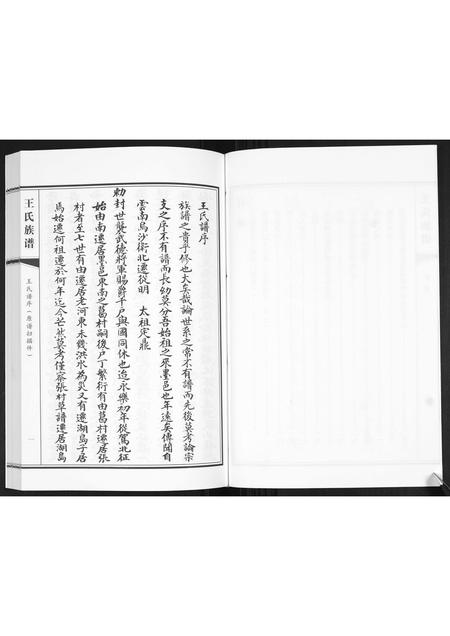 王氏譜序
族譜之貴乎修也大矣哉論世系之常不有譜而先後莫考論宗
支之序不有譜而長幼莫分吾始祖之來墨邑也年遠矣傳聞自
雲南烏沙衛北遷從明 太祖定鼎
勅封世襲武德將軍賜爵千戶與國同休也迨永樂初年從駕北征
始由南遷居墨邑東南之葛村嗣後戶丁繁衍有由葛村遷居張
村者至七世有由遷居老河東未幾洪水為災又有遷湖島子居
焉始遷何祖遷於何年迄今茫然莫考僅序張村草譜遷居湖島
王氏族谱
王氏谱序（原谱扫描件）
一